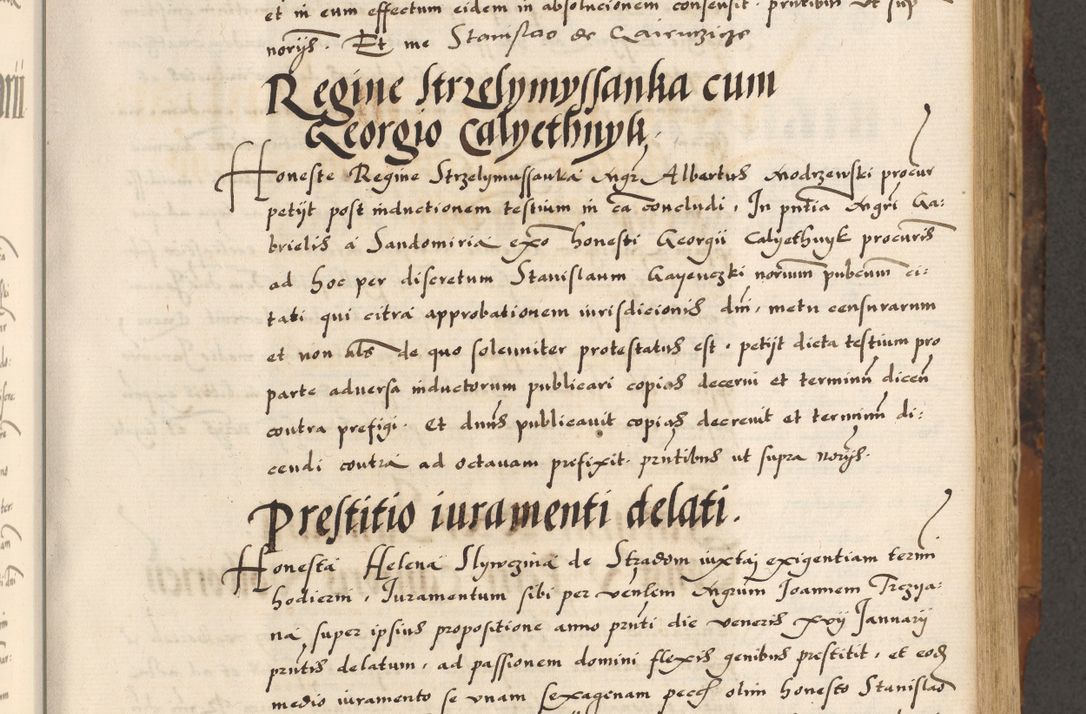 et in eum effectum eidem in absolucionem consensit. pntibus ut sup
norijs. Et me Stanislao de
Regine Strzelymyssanka cum
Georgio Calyethnyk.
Honeste Regine Strzelymussanka Mgr Albertus Modrzewski procur
petijt post inductionem testium in ca concludi, In pntia Mgri Ga:
brielis á Sandomiria exo honesti Georgii Calyethnyk procuris
ad hoc per discretum Stanislaum Gayewczki norium pubcum ci:
tati qui citra approbationem iurisdicionis dni, metu censurarum
et non als de quo solenniter protestatus est, petijt dicta testium pro
parte adversa inductorum publicari copias decerni et terminum dicen
contra prefigi. Et dnus publicavit copias decrevit et terminum di:
cendi contra ad octavam prefixit. pntibus ut supra norijs.
Prestitio iuramenti delati.
Honesta Helena Slywczina de Stradom iuxta exigentiam termi
hodierni, Iuramentum sibi per venlem Mgrum Joannem Trczya:
na super ipsius propositione anno pnti die veneris xvij Januarij
pntis delatum, ad passionem domini flexis genibus prestitit, et eod
medio iuramento se vnam sexagenam pecc olim honesto Stanislao